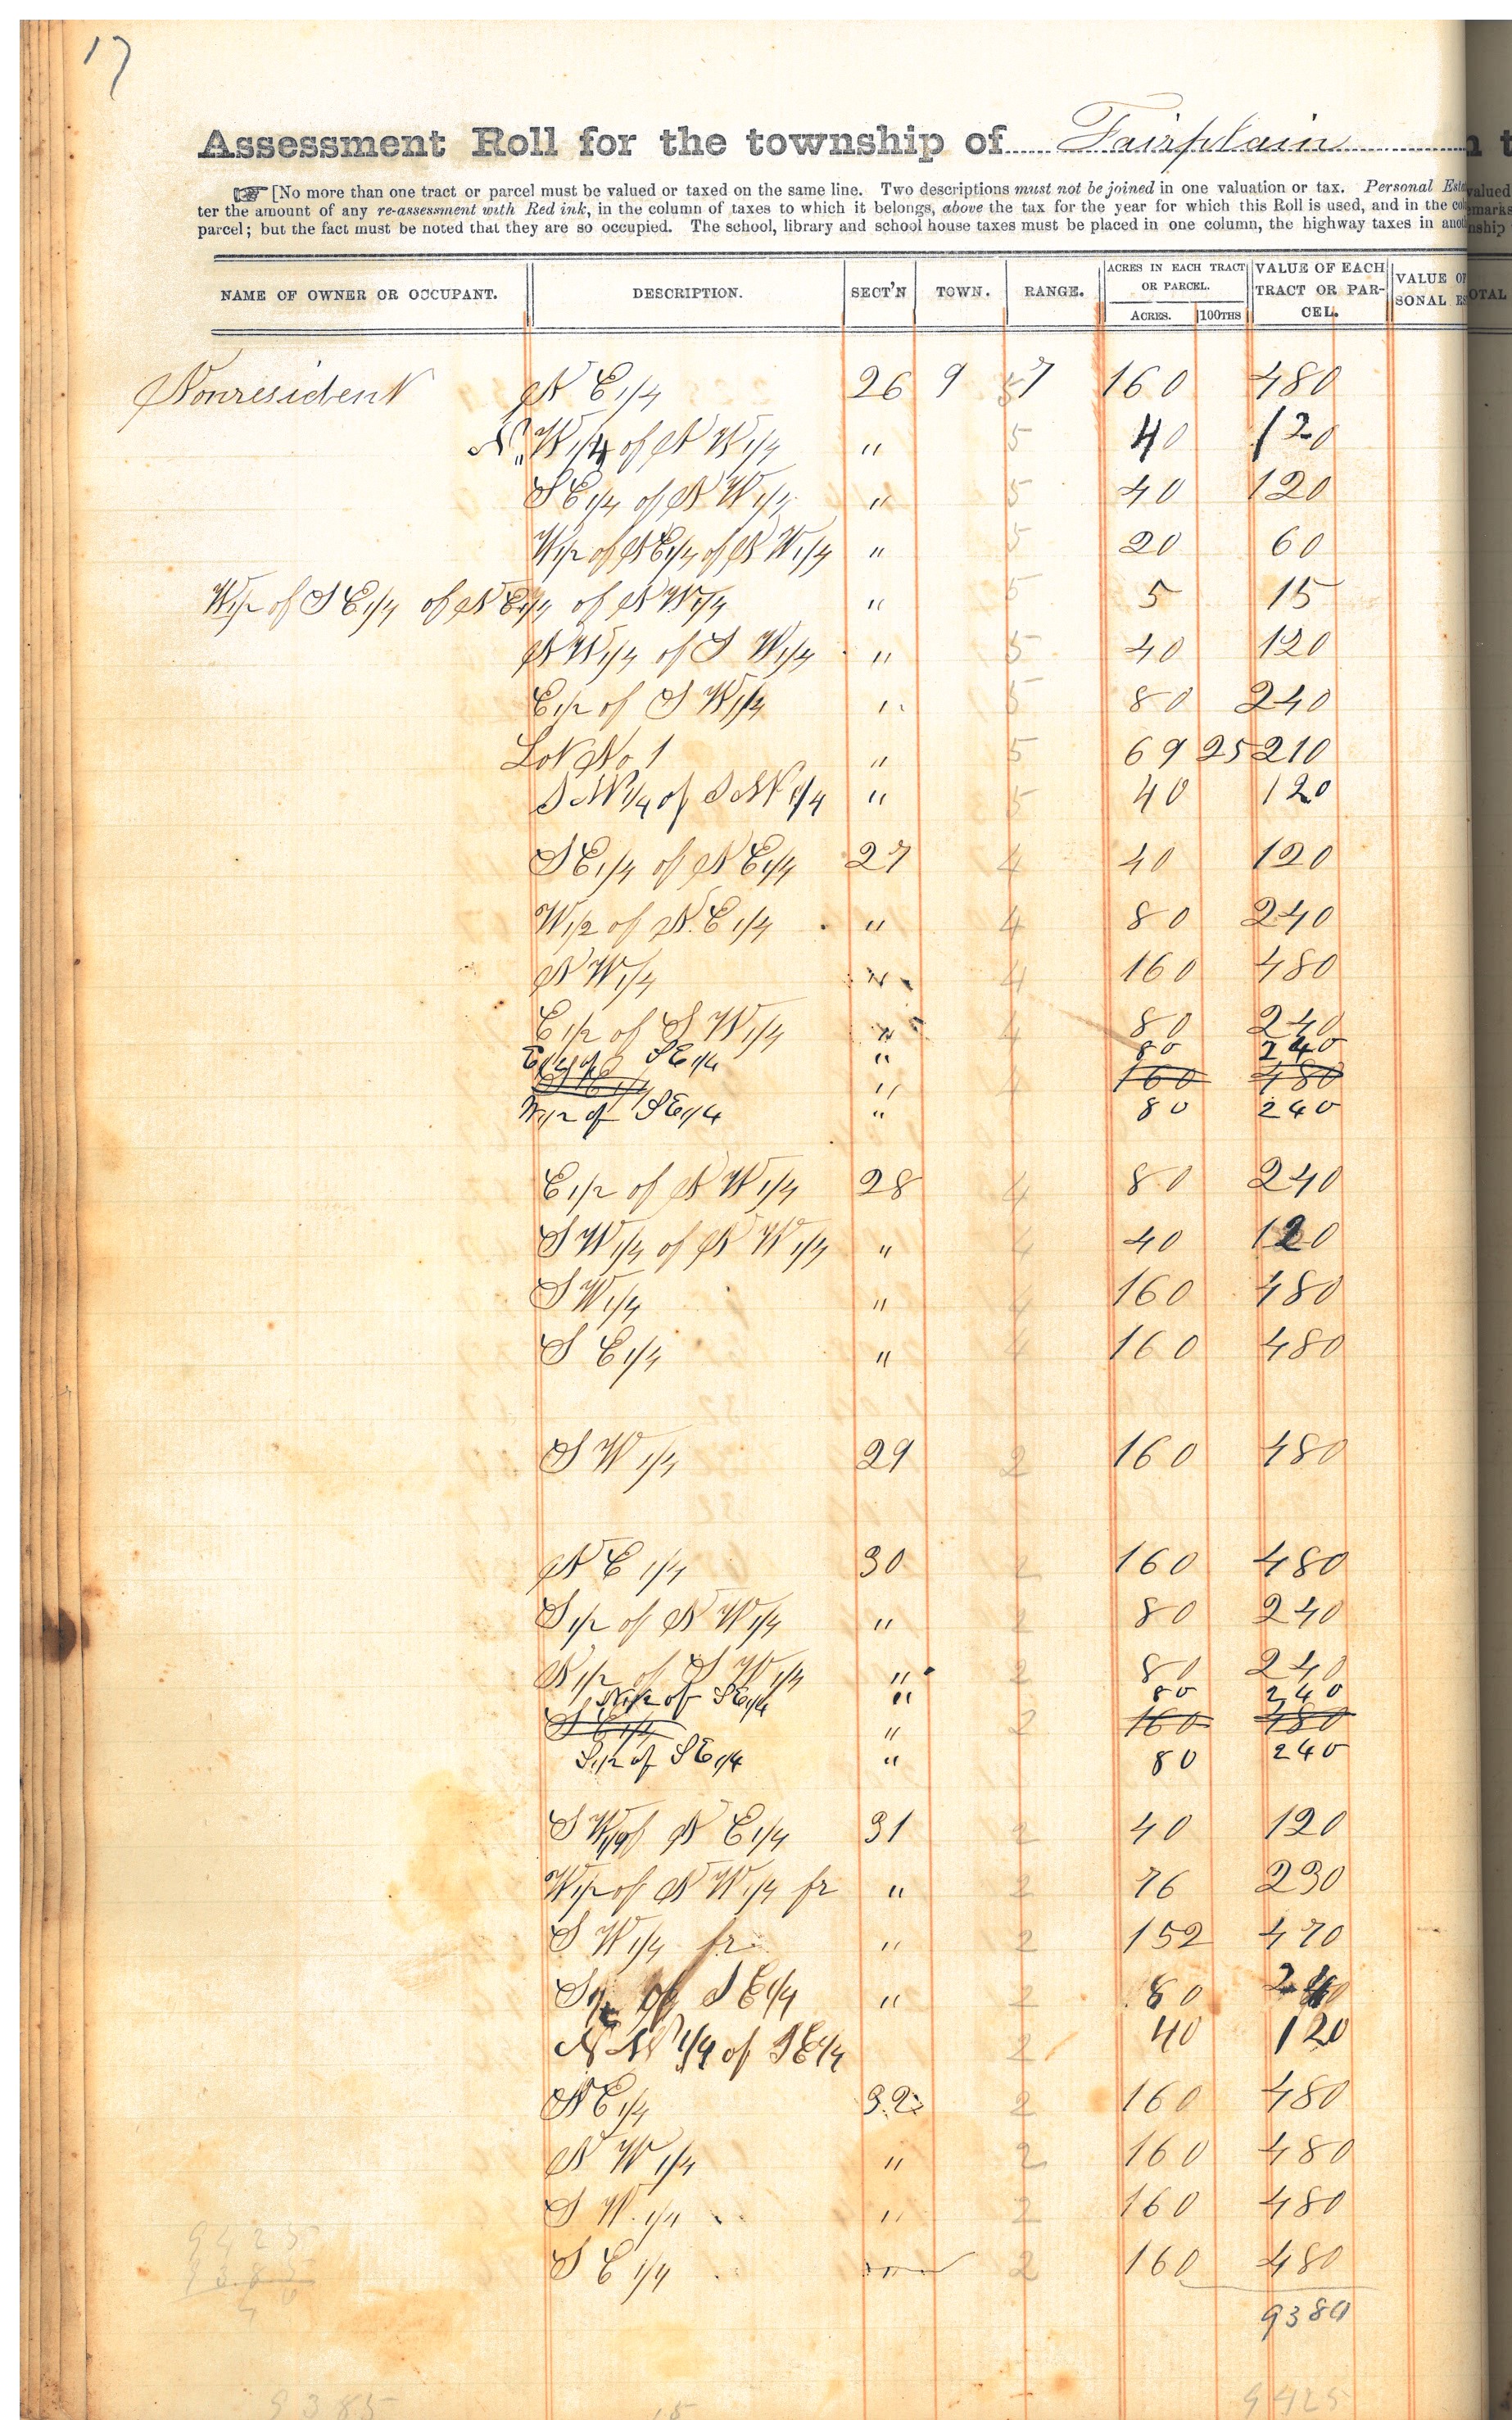 17
Assessment Roll for the township of Fairplain
[No more than one tract or parcel must be valued or taxed on the same line. Two descriptions must not be joined in one valuation or tax. Personal Esta
ter the amount of any re-assessment with Red ink, in the column of taxes to which it belongs, above the tax for the year for which this Roll is used, and in the col
parcel; but the fact must be noted that they are so occupied. The school, library and school house taxes must be placed in one column, the highway taxes in anot
NAME OF OWNER OR OCCUPANT. DESCRIPTION. SECT'N TOWN. RANGE. ACRES IN EACH TRACT OR PARCEL. ACRES. 100THS VALUE OF EACH TRACT OR PARCEL. VALUE OF SONAL ES
Nonresident N E 1/4 26 9 7 160 480
N W 1/4 of N W 1/4 " 5 40 120
S E 1/4 of N W 1/4 " 5 40 120
W 1/2 of N E 1/4 of S W 1/4 " 5 20 60
W 1/2 of S E 1/4 of N E 1/4 of N W 1/4 " 5 5 15
N W 1/4 of S W 1/4 " 5 40 120
E 1/2 of S W 1/4 " 5 80 240
Lot No 1 " 5 69 25 210
S W 1/4 of S W 1/4 " 5 40 120
S E 1/4 of N E 1/4 27 4 40 120
W 1/2 of N. E 1/4 " 4 80 240
N W 1/4 " 4 160 480
E 1/2 of S W 1/4 " 4 80 240
E 1/2 of S E 1/4 " 80 240
S E 1/4 " 4 160 480
W 1/2 of S E 1/4 " 80 240
E 1/2 of N W 1/4 28 4 80 240
S W 1/4 of N W 1/4 " 4 40 120
S W 1/4 " 4 160 480
S E 1/4 " 4 160 480
S W 1/4 29 2 160 480
N E 1/4 30 2 160 480
S 1/2 of N W 1/4 " 2 80 240
N 1/2 of S W 1/4 " 2 80 240
N 1/2 of S E 1/4 " 80 240
S E 1/4 " 2 160 480
S 1/2 of S E 1/4 " 80 240
S W 1/4 of N E 1/4 31 2 40 120
W 1/2 of N W 1/4 fr " 2 76 230
S W 1/4 fr " 2 152 470
S 1/2 of S E 1/4 " 2 80 240
N W 1/4 of S E 1/4 2 40 120
N E 1/4 32 2 160 480
N W 1/4 " 2 160 480
S W 1/4 " 2 160 480
S E 1/4 " 2 160 480
9425
9385
9380
9385
15
9425